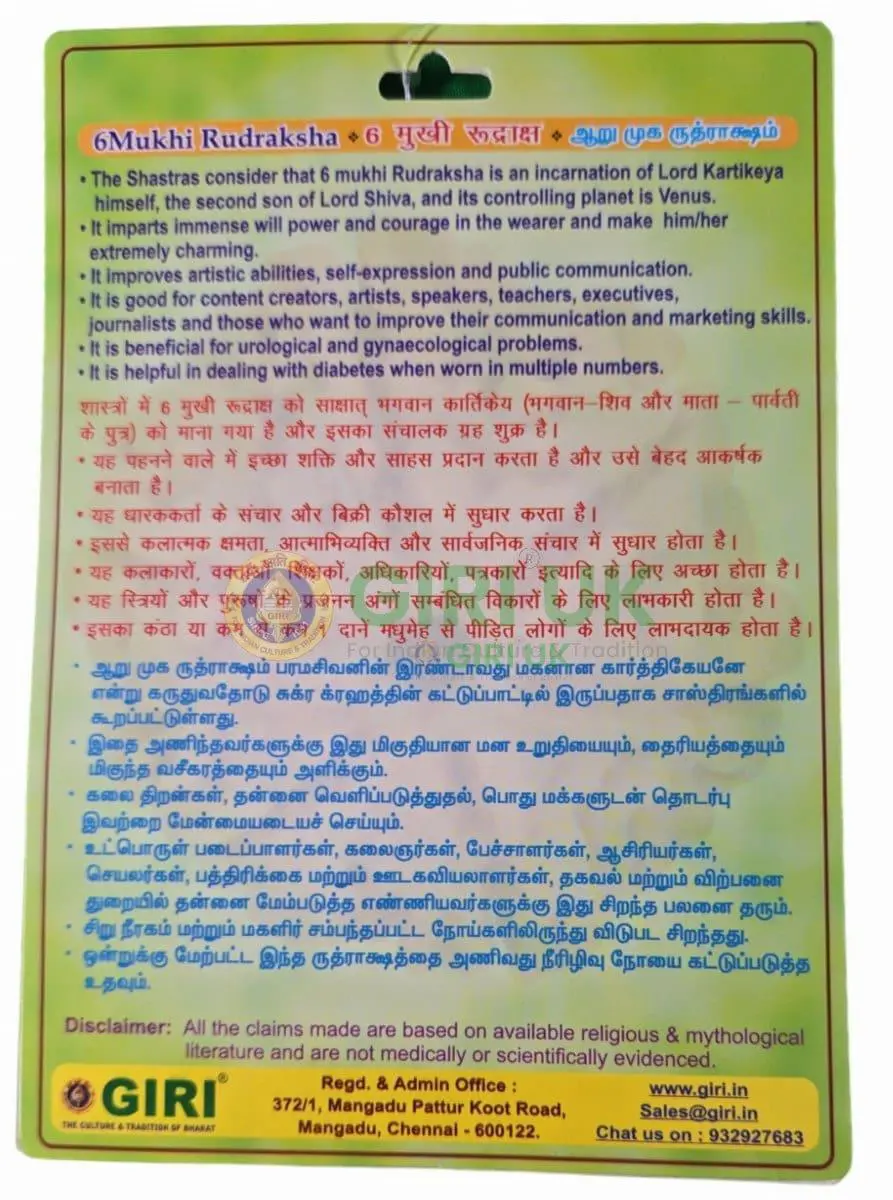 6Mukhi Rudraksha ❖ 6 मुखी रूद्राक्ष ❖ ஆறு முக ருத்ராக்ஷம்
• The Shastras consider that 6 mukhi Rudraksha is an incarnation of Lord Kartikeya
himself, the second son of Lord Shiva, and its controlling planet is Venus.
• It imparts immense will power and courage in the wearer and make him/her
extremely charming.
• It improves artistic abilities, self-expression and public communication.
• It is good for content creators, artists, speakers, teachers, executives,
journalists and those who want to improve their communication and marketing skills.
• It is beneficial for urological and gynaecological problems.
• It is helpful in dealing with diabetes when worn in multiple numbers.
शास्त्रों में 6 मुखी रूद्राक्ष को साक्षात् भगवान कार्तिकेय (भगवान–शिव और माता – पार्वती
के पुत्र) को माना गया है और इसका संचालक ग्रह शुक्र है।
• यह पहनने वाले में इच्छा शक्ति और साहस प्रदान करता है और उसे बेहद आकर्षक
बनाता है।
• यह धारककर्ता के संचार और बिक्री कौशल में सुधार करता है।
• इससे कलात्मक क्षमता, आत्माभिव्यक्ति और सार्वजनिक संचार में सुधार होता है।
• यह कलाकारों, अधिकारियों, पत्रकारों इत्यादि के लिए अच्छा होता है।
• यह स्त्रियों और पुरूषों के प्रजनन अंगों सम्बंधित विकारों के लिए लाभकारी होता है।
• इसका कंठा या दाने मधुमेह से पीड़ित लोगों के लिए लाभदायक होता है।
GIRI UK
For Indian Culture & Tradition
GIRI UK
• ஆறு முக ருத்ராக்ஷம் பரமசிவனின் இரண்டாவது மகனான கார்த்திகேயனே
என்று கருதுவதோடு சுக்ர க்ரஹத்தின் கட்டுப்பாட்டில் இருப்பதாக சாஸ்திரங்களில்
கூறப்பட்டுள்ளது.
• இதை அணிந்தவர்களுக்கு இது மிகுதியான மன உறுதியையும், தைரியத்தையும்
மிகுந்த வசீகரத்தையும் அளிக்கும்.
• கலை திறன்கள், தன்னை வெளிப்படுத்துதல், பொது மக்களுடன் தொடர்பு
இவற்றை மேன்மையடையச் செய்யும்.
• உட்பொருள் படைப்பாளர்கள், கலைஞர்கள், பேச்சாளர்கள், ஆசிரியர்கள்,
செயலர்கள், பத்திரிக்கை மற்றும் ஊடகவியலாளர்கள், தகவல் மற்றும் விற்பனை
துறையில் தன்னை மேம்படுத்த எண்ணியவர்களுக்கு இது சிறந்த பலனை தரும்.
• சிறு நீரகம் மற்றும் மகளிர் சம்பந்தப்பட்ட நோய்களிலிருந்து விடுபட சிறந்தது.
• ஒன்றுக்கு மேற்பட்ட இந்த ருத்ராக்ஷத்தை அணிவது நீரிழிவு நோயை கட்டுப்படுத்த
உதவும்.
Disclaimer: All the claims made are based on available religious & mythological
literature and are not medically or scientifically evidenced.
GIRI®
THE CULTURE & TRADITION OF BHARAT
Regd. & Admin Office :
372/1, Mangadu Pattur Koot Road,
Mangadu, Chennai - 600122.
www.giri.in
Sales@giri.in
Chat us on : 932927683